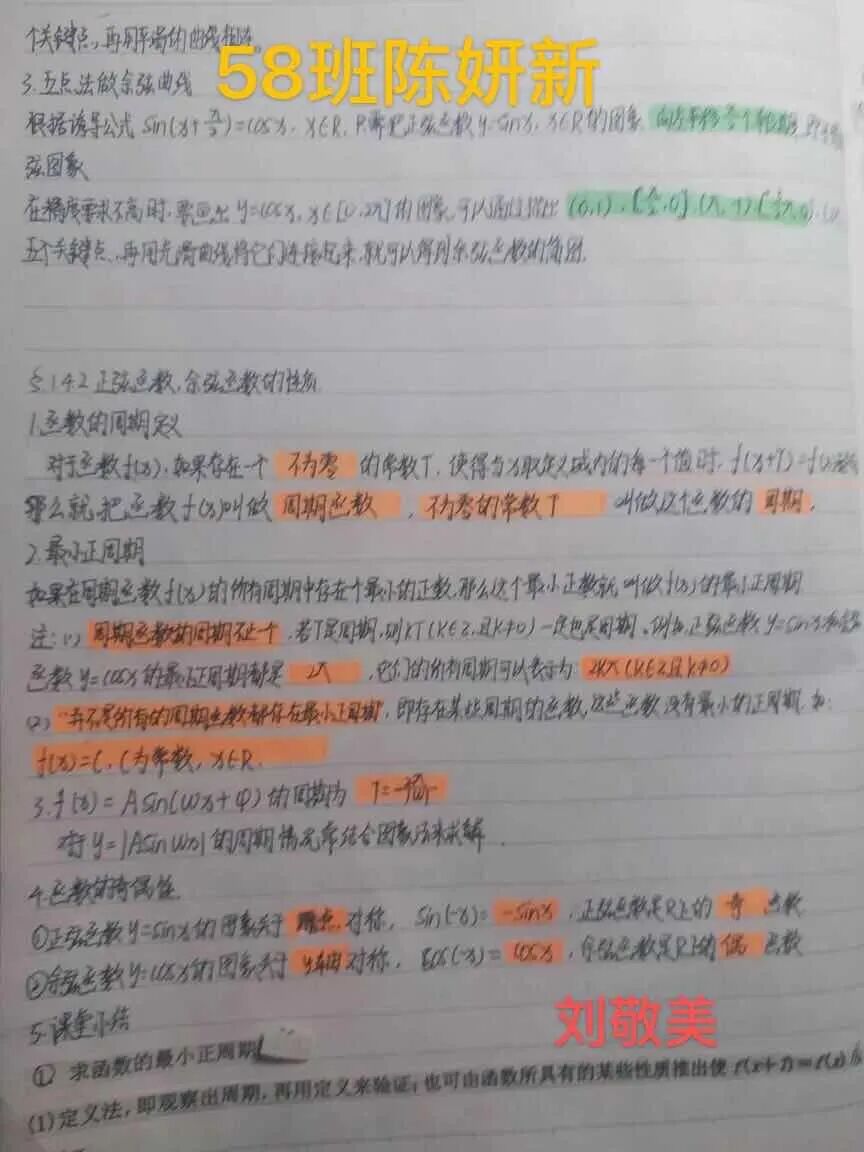 个关键点，再用平滑的曲线相连。
58班陈妍新
3.五点法做余弦曲线
根据诱导公式 sin(x+π/2)=cosx, x∈R, 只需把正弦函数y=sinx, x∈R的图象 向左平移
弦图象
在精度要求不高时,要画出 y=cosx, x∈[0,2π]的图象,可以通过描出 (0,1), [π/2,0], (π,-1)
五个关键点,再用光滑曲线将它们连接起来,就可以得到余弦函数的简图.
§1.4.2 正弦函数,余弦函数的性质
1.函数的周期定义
对于函数f(x),如果存在一个 不为零 的常数T,使得当x取定义域内的每一个值时, f(x+T)=f(x)
那么就把函数f(x)叫做 周期函数 , 不为零的常数T 叫做这个函数的 周期.
2.最小正周期
如果在周期函数f(x)的所有周期中存在个最小的正数,那么这个最小正数就叫做f(x)的最小正周期
注:(1) 周期函数的周期不止一个 ,若T是周期,则kT(k∈Z,且k≠0)一定也是周期,例如,正弦函数y=sinx和余弦
函数y=cosx的最小正周期都是 2π ,它们的所有周期可以表示为: 2kπ(k∈Z,且k≠0)
(2) "并不是所有的周期函数都存在最小正周期",即存在某些周期的函数,这些函数没有最小的正周期.如:
f(x)=C, C为常数, x∈R.
3.f(x)=Asin(ωx+φ)的周期为
对于 y=|Asinωx|的周期情况常结合图象法来求解.
4.函数的奇偶性
①正弦函数y=sinx的图象关于 原点 对称, sin(-x)= -sinx ,正弦函数是R上的 奇 函数
②余弦函数y=cosx的图象关于 y轴 对称, cos(-x)= cosx ,余弦函数是R上的 偶 函数
5.课堂小结
刘敬美
① 求函数的最小正周期
(1)定义法，即观察出周期，再用定义来验证；也可由函数所具有的某些性质推出使 f(x+T)=f(x)